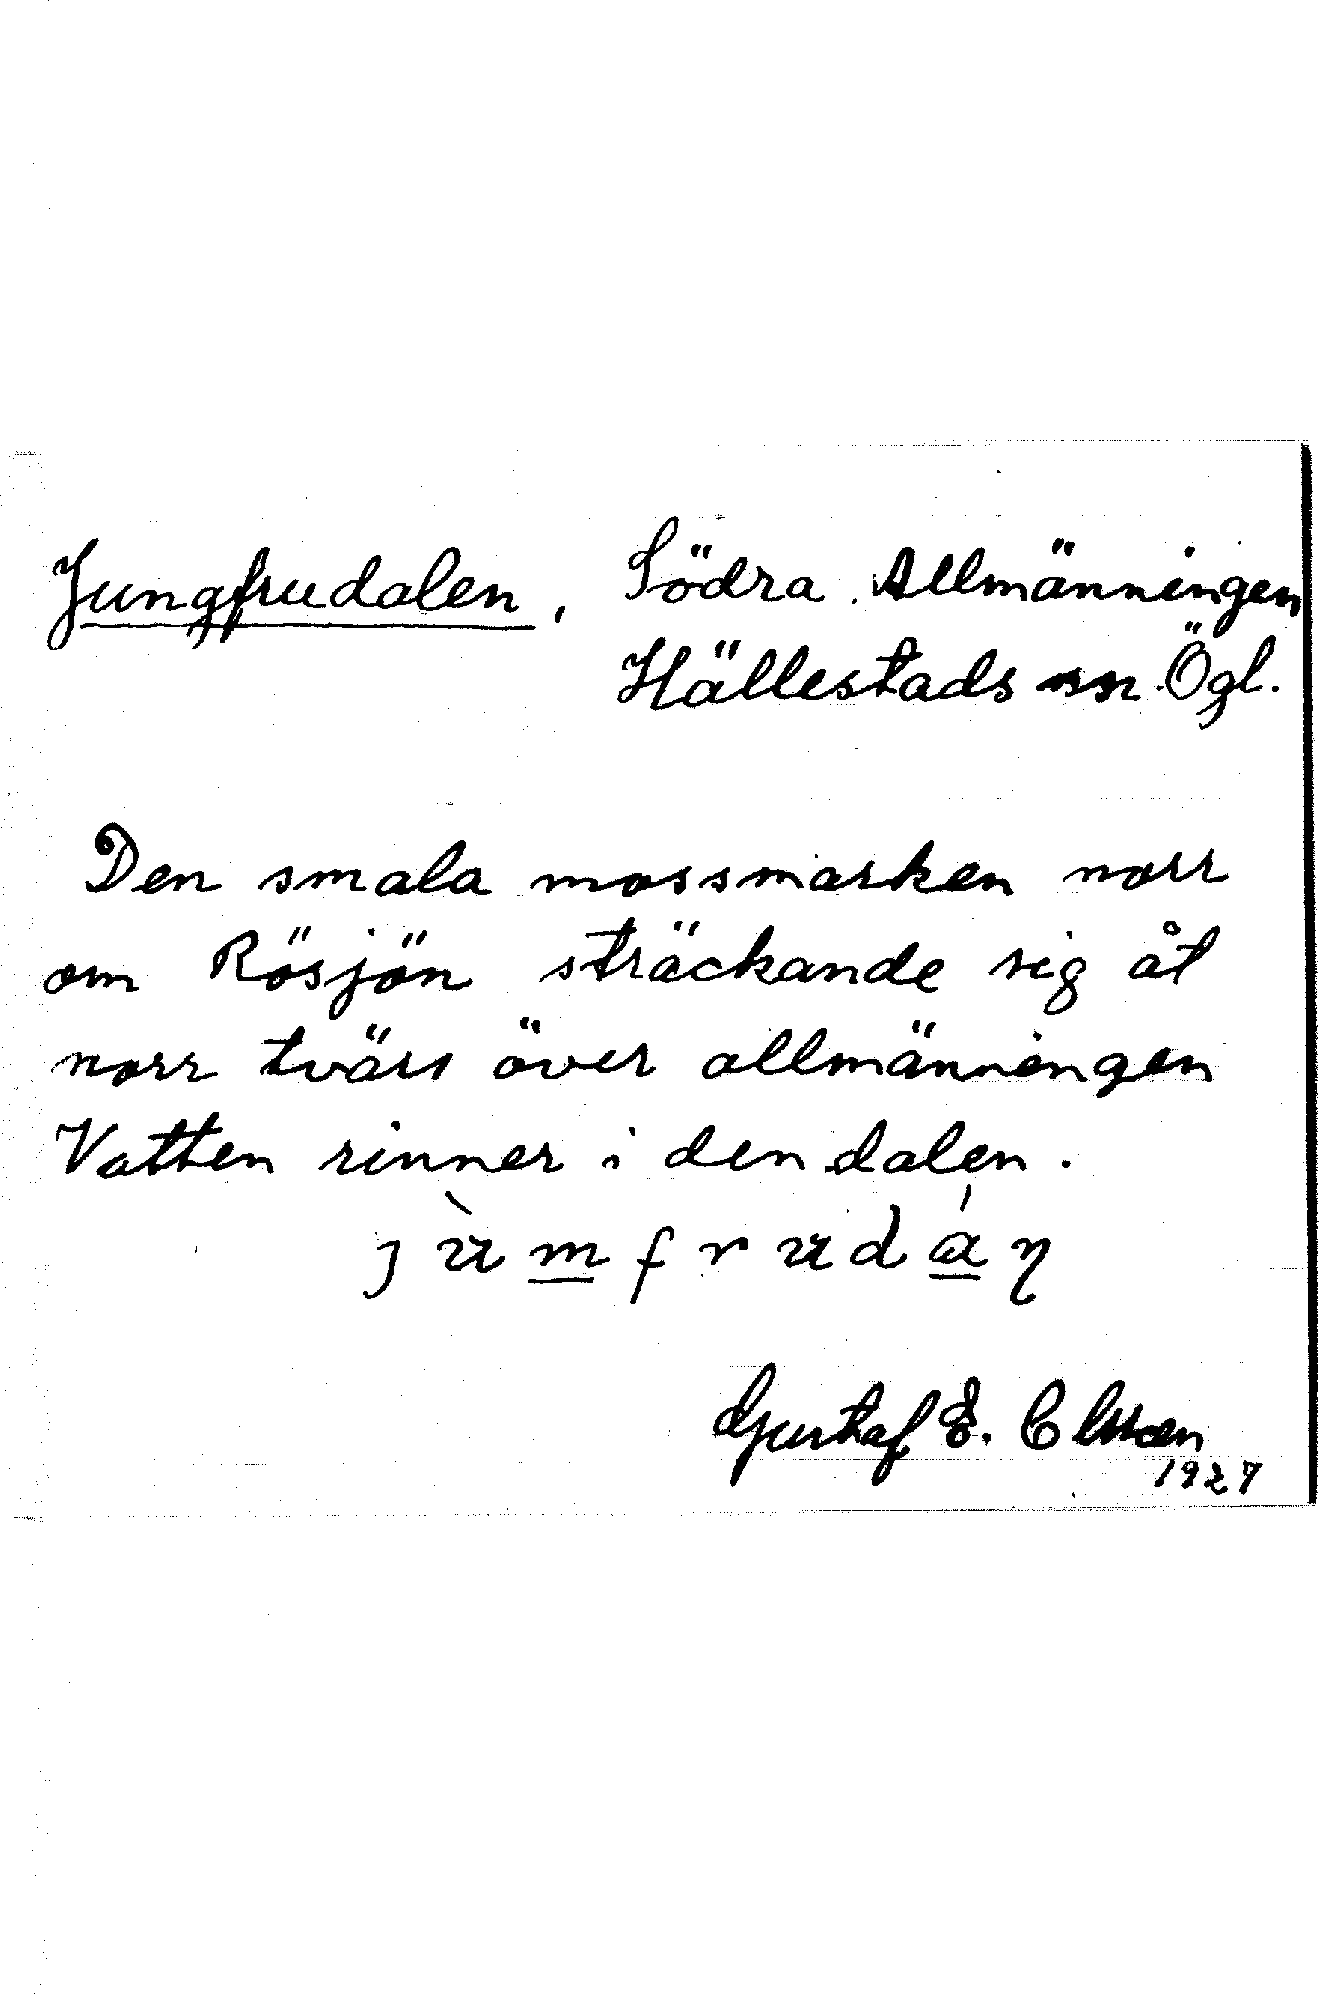 Jungfrudalen, Södra Allmänningen
Hällestads sn Ögl.
Den smala mossmarken norr
om Rösjön sträckande sig åt
norr tvärs över allmänningen
Vatten rinner i den dalen.
jùmfrudáɳ
Gustaf E.
1927